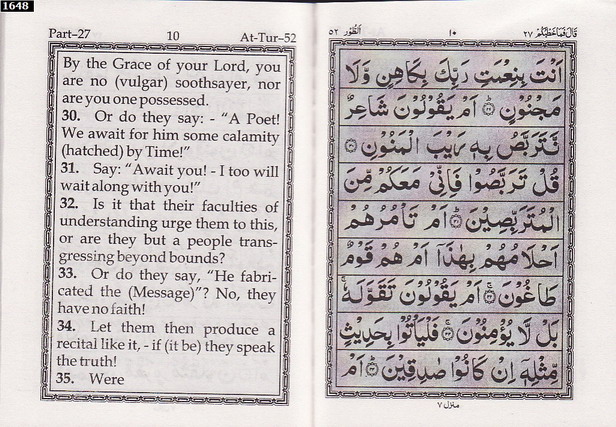 1648
Part–27 10 At-Tur–52
By the Grace of your Lord, you
are no (vulgar) soothsayer, nor
are you one possessed.
30. Or do they say: - “A Poet!
We await for him some calamity
(hatched) by Time!”
31. Say: “Await you! - I too will
wait along with you!”
32. Is it that their faculties of
understanding urge them to this,
or are they but a people trans-
gressing beyond bounds?
33. Or do they say, “He fabri-
cated the (Message)”? No, they
have no faith!
34. Let them then produce a
recital like it, - if (it be) they speak
the truth!
35. Were
قَالَ فَمَا خَطْبُكُمْ ٢٧ ١٠ اَلطُّوْر ٥٢
اَنْتَ بِنِعْمَتِ رَبِّكَ بِكَاهِنٍ وَّلَا
مَجْنُوْنٍ ۝٢٩ اَمْ يَقُوْلُوْنَ شَاعِرٌ
نَّتَرَبَّصُ بِهٖ رَيْبَ الْمَنُوْنِ ۝٣٠
قُلْ تَرَبَّصُوْا فَاِنِّيْ مَعَكُمْ مِّنَ
الْمُتَرَبِّصِيْنَ ۝٣١ اَمْ تَاْمُرُهُمْ
اَحْلَامُهُمْ بِهٰذَآ اَمْ هُمْ قَوْمٌ
طَاغُوْنَ ۝٣٢ اَمْ يَقُوْلُوْنَ تَقَوَّلَهٗ
بَلْ لَّا يُؤْمِنُوْنَ ۝٣٣ فَلْيَاْتُوْا بِحَدِيْثٍ
مِّثْلِهٖٓ اِنْ كَانُوْا صٰدِقِيْنَ ۝٣٤ اَمْ
منزل ٧